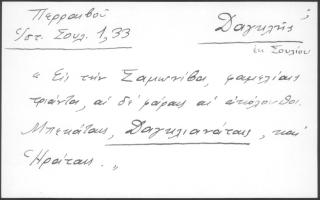 Περραιβοῦ
Ἱστ. Σουλ. 1, 33
Δαγκλῆς
ἐκ Σουλίου
" Εἰς τὴν Σαμωνίβα, φαμελίαις
τριάντα, αἱ δὲ φάραις αἱ ἀκόλουθοι.
Μπεκάταις, Δαγκλιανάταις, καὶ
Ἠράταις. "